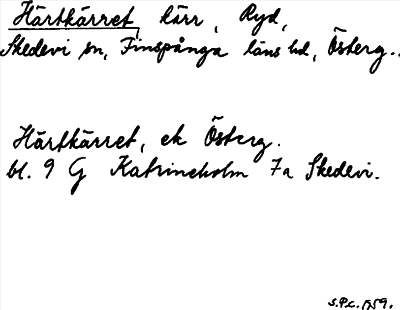 Härtkärret, kärr, Ryd,
Skedevi sn, Finspånga läns hd, Österg.
Härtkärret, ek Österg.
bl. 9 G Katrineholm 7a Skedevi.
S.P.c. 1959.